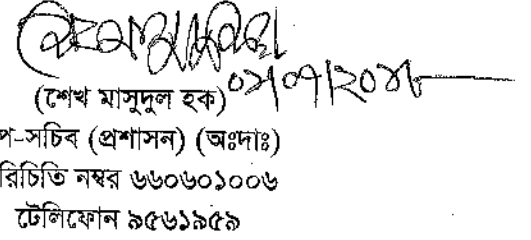 (শেখ মাসুদুল হক)
প-সচিব (প্রশাসন) (অঃদাঃ)
রিচিতি নম্বর ৬৬০৬০১০০৬
টেলিফোন ৯৫৬১৯৫৯